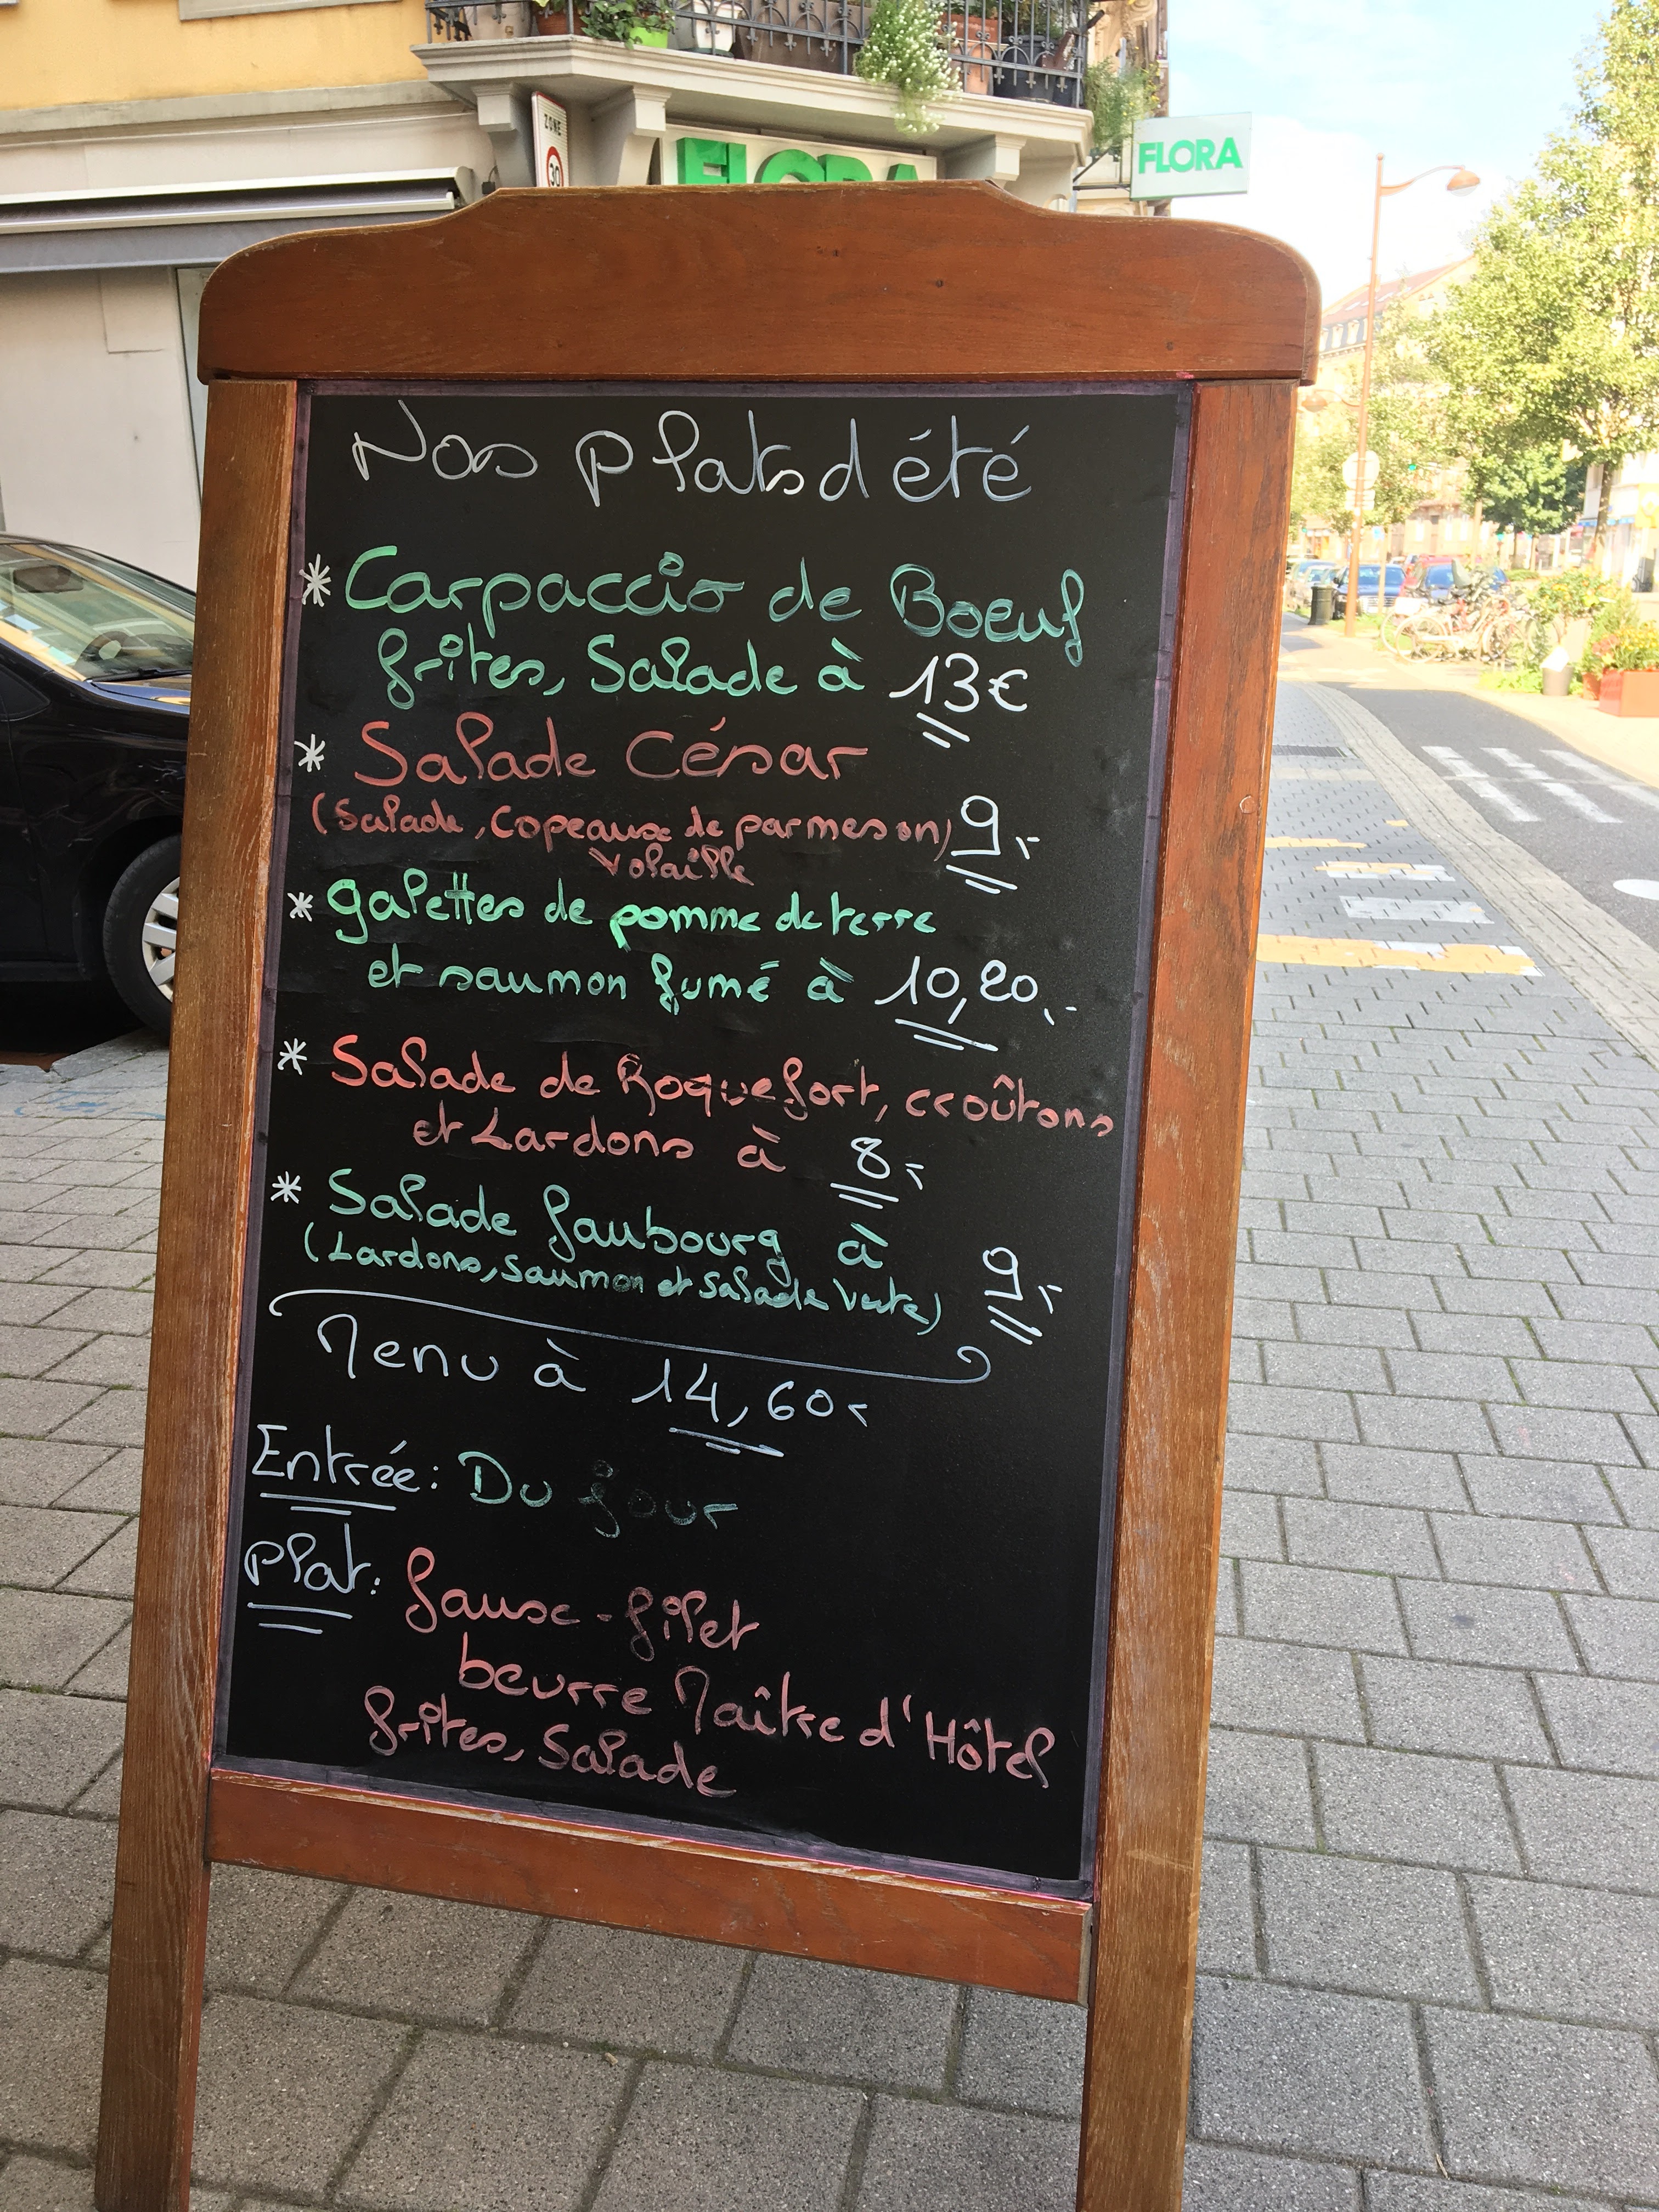 ZONE
30
FLORA
FLORA
Nos plats d été
* Carpaccio de Boeuf
frites, Salade à 13€
* Salade César
(Salade, Copeaux de parmesan) 9,-
Volaille
* galettes de pomme de terre
et saumon fumé à 10,20,-
* Salade de Roquefort, croûtons
et Lardons à 8,-
* Salade faubourg à
(Lardons, Saumon et Salade Verte) 9,-
Menu à 14,60-
Entrée: Du jour
Plat: faux-filet
beurre Maître d'Hôtel
frites, Salade